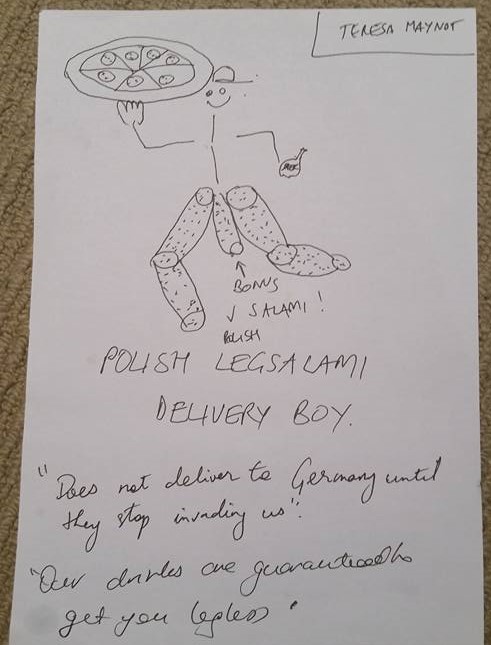 TERESA MAYNOT
BONUS
SALAMI !
POLISH
POLISH LEGSALAMI
DELIVERY BOY.
"Does not deliver to Germany until
they stop invading us".
"Our drinks are guaranteed to
get you legless"